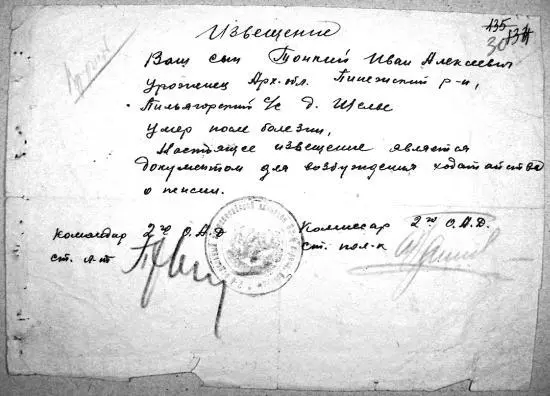 Извещение
135
30 134
Ваш сын Тонкий Иван Алексеевич
уроженец Арх. обл. Пинежский р-н,
Пильегорский с/с д. Щелье
умер после болезни,
Настоящее извещение является
документом для возбуждения ходатайства
о пенсии.
Командир 2го О.А.Д.
ст. л-т
Комиссар 2го О.А.Д.
ст. пол-к